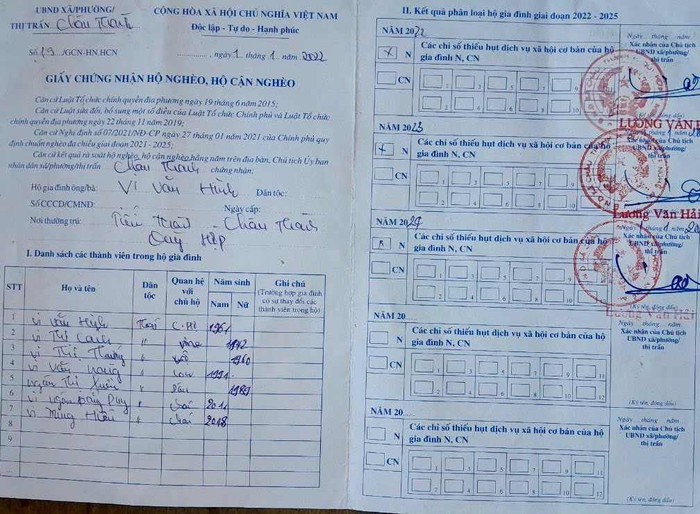 UBND XÃ/PHƯỜNG/
THỊ TRẤN Châu Thành
Số: 19/GCN-HN.HCN
CỘNG HÒA XÃ HỘI CHỦ NGHĨA VIỆT NAM
Độc lập - Tự do - Hạnh phúc
, ngày 1 tháng 1 năm 2022
GIẤY CHỨNG NHẬN HỘ NGHÈO, HỘ CẬN NGHÈO
Căn cứ Luật Tổ chức chính quyền địa phương ngày 19 tháng 6 năm 2015;
Căn cứ Luật sửa đổi, bổ sung một số điều của Luật Tổ chức Chính phủ và Luật Tổ chức
chính quyền địa phương ngày 22 tháng 11 năm 2019;
Căn cứ Nghị định số 07/2021/NĐ-CP ngày 27 tháng 01 năm 2021 của Chính phủ quy
định chuẩn nghèo đa chiều giai đoạn 2021 - 2025;
Căn cứ kết quả rà soát hộ nghèo, hộ cận nghèo hằng năm trên địa bàn, Chủ tịch Ủy ban
nhân dân xã/phường/thị trấn Châu Thành chứng nhận:
Hộ gia đình ông/bà: Vi Văn Hình Dân tộc:
Số CCCD/CMND: Ngày cấp:
Nơi thường trú: Châu Thành
Quỳ Hợp
I. Danh sách các thành viên trong hộ gia đình
STT Họ và tên Dân tộc Quan hệ với chủ hộ Năm sinh Nam Nữ Ghi chú
(Trường hợp gia đình có sự thay đổi các thành viên trong hộ)
1 Vi Văn Hình Thái C-Hộ
2 Vi Thị
3 Vi Thị 1960
4 Vi Văn 1991
5 Ngân Thị 1989
6 Vi Ngân Duy 201
7 Vi 2018
8
9
...
II. Kết quả phân loại hộ gia đình giai đoạn 2022 - 2025
NĂM 2022
X N
CN
Các chỉ số thiếu hụt dịch vụ xã hội cơ bản của hộ
gia đình N, CN
1 3 5 7 9 11
2 4 6 8 10 12
Ngày tháng năm
Xác nhận của Chủ tịch
UBND xã/phường/
thị trấn
LƯƠNG VĂN HẢI
NĂM 2023
X N
CN
Các chỉ số thiếu hụt dịch vụ xã hội cơ bản của hộ
gia đình N, CN
1 3 5 7 9 11
2 4 6 8 10 12
Xác nhận của Chủ tịch
UBND xã/phường/
thị trấn
Lương Văn Hải
NĂM 2024
N
CN
Các chỉ số thiếu hụt dịch vụ xã hội cơ bản của hộ
gia đình N, CN
1 3 5 7 9 11
2 4 6 8 10 12
Xác nhận của Chủ tịch
UBND xã/phường/
thị trấn
(Ký tên, đóng dấu)
Lương Văn Hải
NĂM 20
N
CN
Các chỉ số thiếu hụt dịch vụ xã hội cơ bản của hộ
gia đình N, CN
1 3 5 7 9 11
2 4 6 8 10 12
Ngày tháng năm
Xác nhận của Chủ tịch
UBND xã/phường/
thị trấn
(Ký tên, đóng dấu)
NĂM 20
N
CN
Các chỉ số thiếu hụt dịch vụ xã hội cơ bản của hộ
gia đình N, CN
1 3 5 7 9 11
2 4 6 8 10 12
Ngày tháng năm
Xác nhận của Chủ tịch
UBND xã/phường/
thị trấn
(Ký tên, đóng dấu)